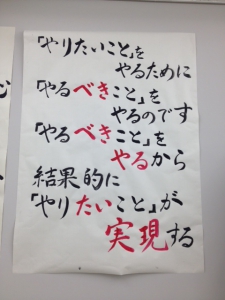 「やりたいこと」を
やるために
「やるべきこと」を
やるのです
「やるべきこと」を
やるから
結果的に
「やりたいこと」が
実現する